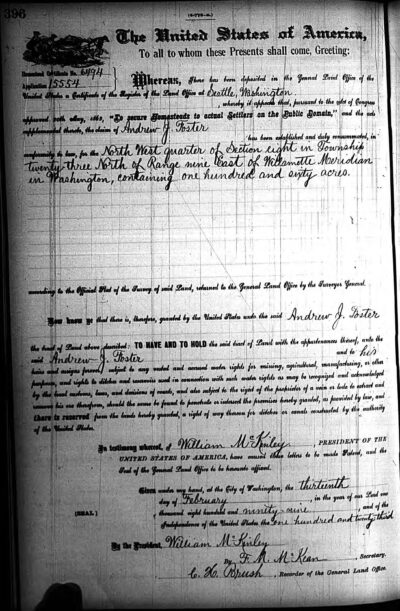 396
(4-775-a.)
The United States of America,
To all to whom these Presents shall come, Greeting:
Homestead Certificate No. 6494
Application 15554
Whereas, There has been deposited in the General Land Office of the
United States a Certificate of the Register of the Land Office at Seattle, Washington
, whereby it appears that, pursuant to the Act of Congress
approved 20th May, 1862, "To secure Homesteads to actual Settlers on the Public Domain," and the acts
supplemental thereto, the claim of Andrew J. Foster
has been established and duly consummated, in
conformity to law, for the North West quarter of Section eight in Township
twenty-three North of Range nine East of Willamette Meridian
in Washington, containing one hundred and sixty acres.
according to the Official Plat of the Survey of said Land, returned to the General Land Office by the Surveyor General.
Now know ye that there is, therefore, granted by the United States unto the said Andrew J. Foster
the tract of Land above described: TO HAVE AND TO HOLD the said tract of Land with the appurtenances thereof, unto the
said Andrew J. Foster and to his
heirs and assigns forever, subject to any vested and accrued water rights for mining, agricultural, manufacturing, or other
purposes, and rights to ditches and reservoirs used in connection with such water rights as may be recognized and acknowledged
by the local customs, laws, and decisions of courts, and also subject to the right of the proprietor of a vein or lode to extract and
remove his ore therefrom, should the same be found to penetrate or intersect the premises hereby granted, as provided by law, and
there is reserved from the lands hereby granted, a right of way thereon for ditches or canals constructed by the authority
of the United States.
In testimony whereof, I William McKinley, PRESIDENT OF THE
UNITED STATES OF AMERICA, have caused these letters to be made Patent, and the
Seal of the General Land Office to be hereunto affixed.
Given under my hand, at the City of Washington, the thirteenth
day of February, in the year of our Lord one
(SEAL.) thousand eight hundred and ninety-nine, and of the
Independence of the United States the one hundred and twenty-third
By the President, William McKinley
By F. M. McKean, Secretary.
C. H. Brush, Recorder of the General Land Office.